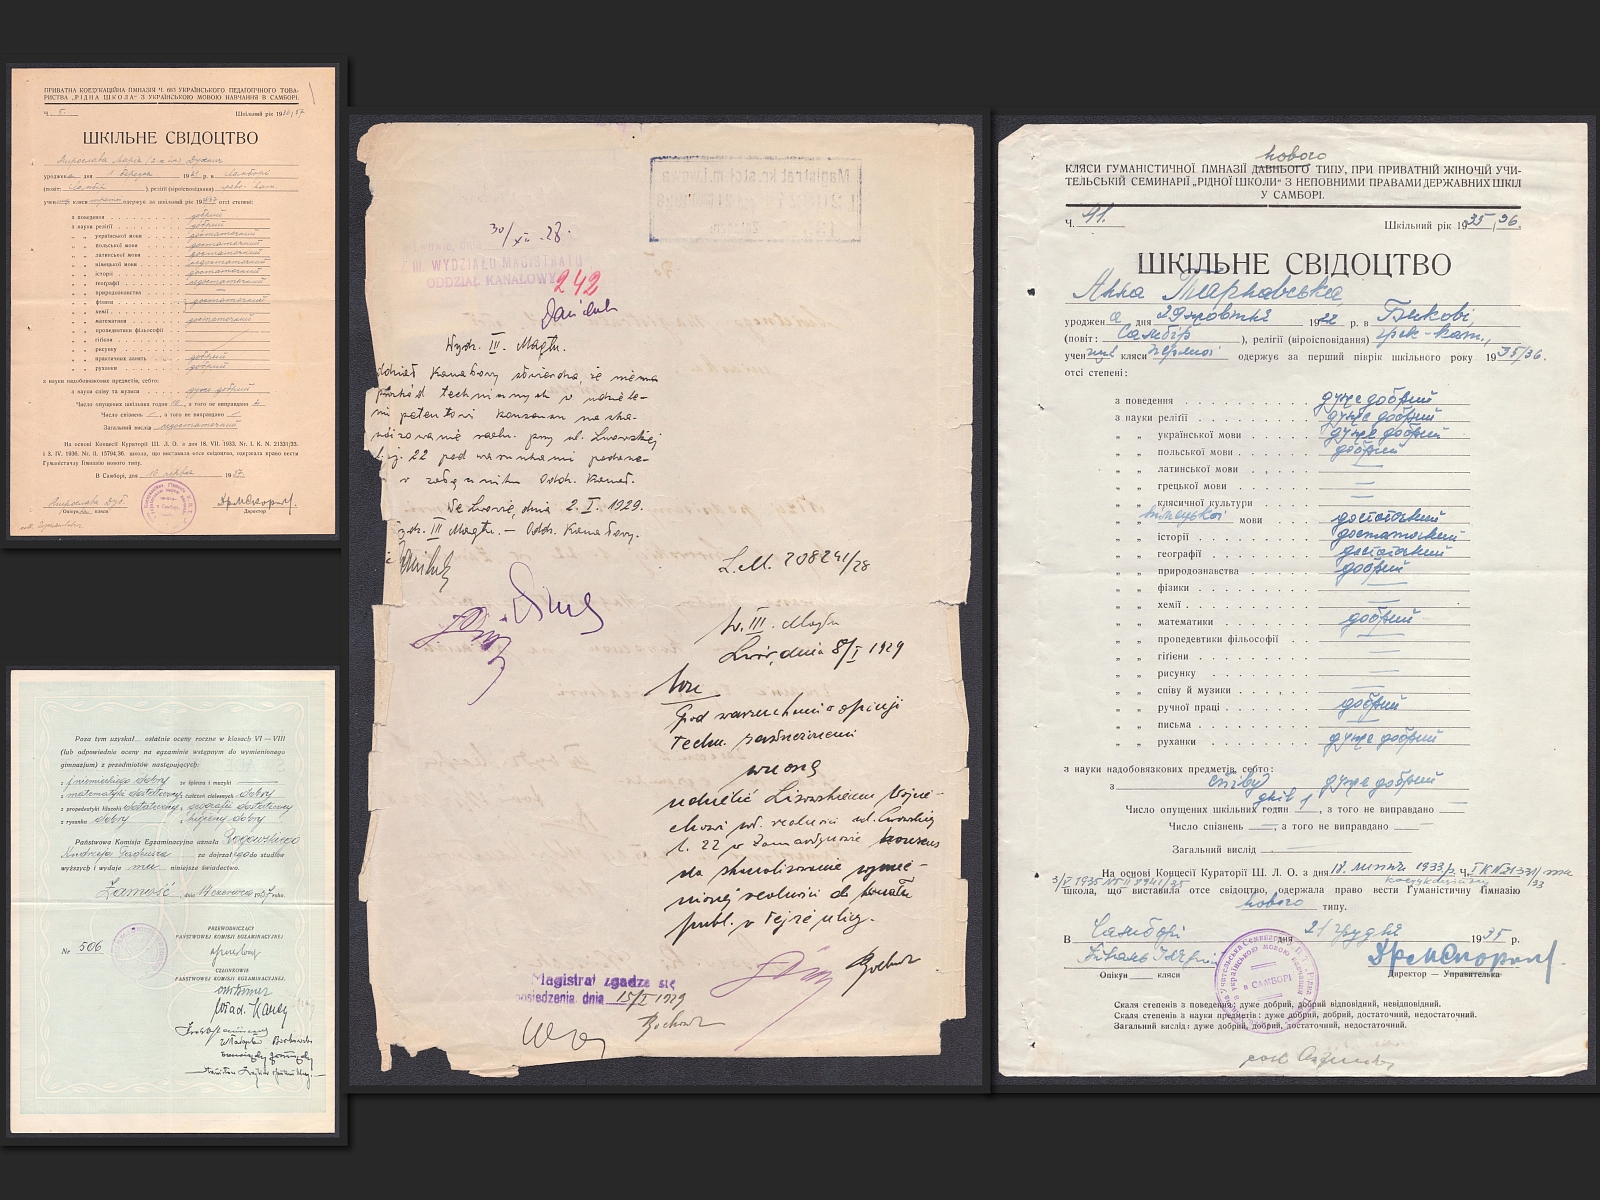 ПРИВАТНА КОЕДУКАЦІЙНА ҐІМНАЗІЯ Ч. 603 УКРАЇНСЬКОГО ПЕДАҐОҐІЧНОГО ТОВА-
РИСТВА „РІДНА ШКОЛА" З УКРАЇНСЬКОЮ МОВОЮ НАВЧАННЯ В САМБОРІ.
Ч. 5.
Шкільний рік 1936/37
ШКІЛЬНЕ СВІДОЦТВО
уроджена дня 1 березня 19 р. в
(повіт: Самбір), релігії (віроісповідання)
кляси одержує за шкільний рік 19 отсі степені:
з поведення добрий
з науки релігії добрий
„ „ української мови достаточний
„ „ польської мови достаточний
„ „ латинської мови достаточний
„ „ німецької мови недостаточний
„ „ історії достаточний
„ „ географії недостаточний
„ „ природознавства
„ „ фізики достаточний
„ „ хемії
„ „ математики достаточний
„ „ пропедевтики фільософії
„ „ гігієни
„ „ рисунку
„ „ практичних занять добрий
„ „ руханки добрий
з науки надобовязкових предметів, себто:
з науки співу та музики дуже добрий
Число опущених шкільних годин, а того не виправдано
Число спізнень —, а того не виправдано —
Загальний вислід недостаточний
На основі Концесії Кураторії Ш. Л. О. з дня 18. VII. 1933. Nr. I. K. N. 21331/33.
і 3. IV. 1936. Nr. II. 15794/36. школа, що виставила отсе свідоцтво, одержала право вести
Гуманістичну Ґімназію нового типу.
В Самборі, дня 16 червня 1937
Опікун кляси
Директор
Poza tym uzyskał ostatnie oceny roczne w klasach VI — VIII
(lub odpowiednie oceny na egzaminie wstępnym do wymienionego
gimnazjum) z przedmiotów następujących:
z j. niemieckiego dobry ze śpiewu i muzyki
z matematyki dostateczny z ćwiczeń cielesnych dobry
z propedeutyki filozofii dostateczny z geografii dostateczny
z rysunku dobry z higieny dobry
Państwowa Komisja Egzaminacyjna uznała
Andrzeja Tadeusza za dojrzałego do studiów
wyższych i wydaje mu niniejsze świadectwo.
Zamość, dnia 14 czerwca 1937 roku.
Nr 506
PRZEWODNICZĄCY
PAŃSTWOWEJ KOMISJI EGZAMINACYJNEJ
CZŁONKOWIE
PAŃSTWOWEJ KOMISJI EGZAMINACYJNEJ.
30/XII. 28.
III. WYDZIAŁU MAGISTRATU
ODDZIAŁ KANAŁOWY
242
Wydz. III. Magtu.
Oddział Kanałowy stwierdza, że niema
przeszkód technicznych w udziele-
niu petentowi konsensu na ska-
nalizowanie realn. przy ul. Lwowskiej
l. 22 pod warunkami podane-
mi w załączniku Oddz. Kanał.
We Lwowie, dnia 2. I. 1929.
Wydz. III Magtu. — Oddz. Kanałowy.
L. M. 208241/28
W. III. Magtu
Lwów, dnia 8/I 1929
Pod warunkami opinji
Techn. zastrzeżeniami
wnoszę
udzielić Lisowskiemu Wojcie-
chowi wł. realności ul. Lwowskiej
l. 22 w Zamarstynowie konsens
na skanalizowanie wymie-
nionej realności do kanału
publ. w tejże ulicy.
Magistrat zgadza się
posiedzenia dnia 15/I 1929
нового
КЛЯСИ ГУМАНІСТИЧНОЇ ҐІМНАЗІЇ ДАВНЬОГО ТИПУ, ПРИ ПРИВАТНІЙ ЖІНОЧІЙ УЧИ-
ТЕЛЬСЬКІЙ СЕМИНАРІЇ „РІДНОЇ ШКОЛИ" З НЕПОВНИМИ ПРАВАМИ ДЕРЖАВНИХ ШКІЛ
У САМБОРІ.
Ч. 41.
Шкільний рік 1935/36.
ШКІЛЬНЕ СВІДОЦТВО
Анна Тарнавська
уроджена дня 29 жовтня 1922 р. в Бикові
(повіт: Самбір), релігії (віроісповідання) грек-кат.,
учениця кляси першої одержує за перший піврік шкільного року 1935/36.
отсі степені:
з поведення дуже добрий
з науки релігії дуже добрий
„ „ української мови дуже добрий
„ „ польської мови добрий
„ „ латинської мови —
„ „ грецької мови —
„ „ клясичної культури —
„ „ німецької мови достаточний
„ „ історії достаточний
„ „ географії достаточний
„ „ природознавства добрий
„ „ фізики —
„ „ хемії —
„ „ математики добрий
„ „ пропедевтики фільософії —
„ „ гігієни —
„ „ рисунку —
„ „ співу й музики —
„ „ ручної праці добрий
„ „ письма —
„ „ руханки дуже добрий
з науки надобовязкових предметів, себто:
з співу дуже добрий
Число опущених шкільних годин днів 1, а того не виправдано —
Число спізнень —, а того не виправдано —
Загальний вислід —
На основі Концесії Кураторії Ш. Л. О. з дня 18. липня 1933 р. Ч. I K N 21331/33 та
3/V 1935 N II 8941/35
школа, що виставила отсе свідоцтво, одержала право вести Гуманістичну Ґімназію
нового типу.
В Самборі дня 21 грудня 1935 р.
Опікун кляси
Директор — Управителька
В САМБОРІ
Скаля степенів з поведення: дуже добрий, добрий відповідний, невідповідний.
Скаля степенів з науки предметів: дуже добрий, добрий, достаточний, недостаточний.
Загальний вислід: дуже добрий, добрий, достаточний, недостаточний.